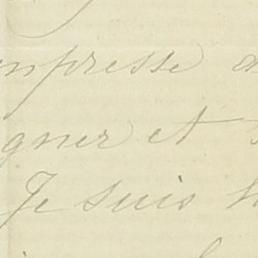 mpresse d
gner et
Je suis